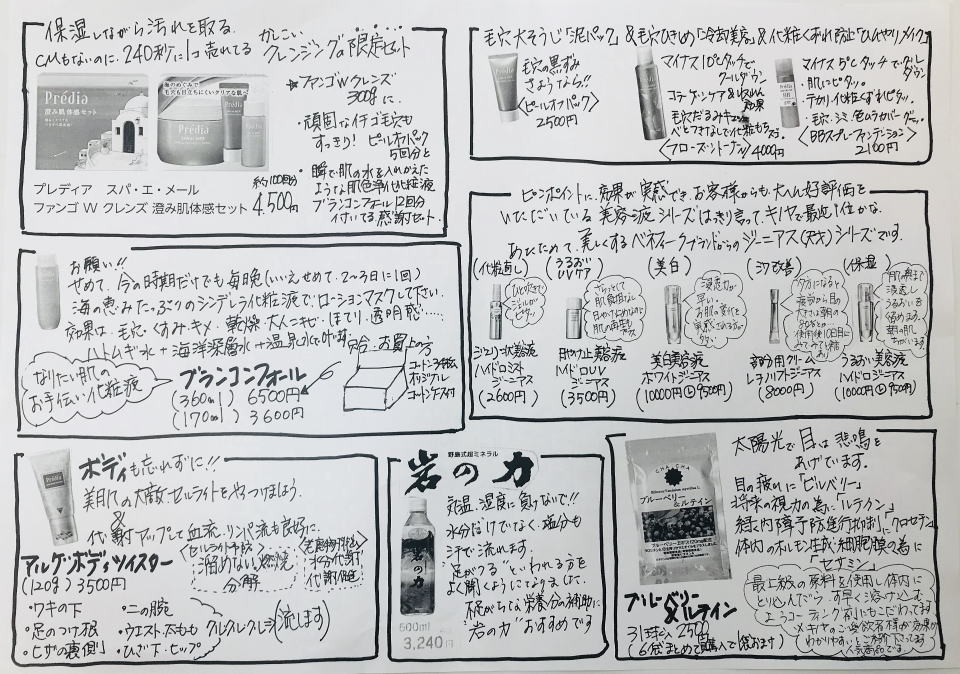 保湿しながら汚れを取る
CMもないのに、240秒に1コ売れてる かしこい クレンジングの限定セット
Prédia
澄み肌体感セット
Prédia
★ファンゴWクレンズ
300gに、
・頑固なイチゴ毛穴も
すっきり! ピールオフパック
5回分と
・瞬で肌の水を入れかえた
ような肌色浄化化粧液
ブランコンフォール12回分
付いてる感謝セット.
プレディア スパ・エ・メール
ファンゴ W クレンズ 澄み肌体感セット
約100回分
4,500円
毛穴大そうじ「泥パック」&毛穴ひきしめ「冷却美容」&化粧くずれ防止「ひんやりメイク」
毛穴の黒ずみ
さようなら!!
<ピールオフパック>
2500円
マイナス10℃タッチで
クールダウン
毛穴だるみキュッ
ベとつきなしで化粧もち
4000円
マイナス5℃タッチでクールダウン
・肌にピタッ。
・テカリ化粧くずれピタッ。
・毛穴・シミ・色ムラカバー
<BBスプレーファンデーション>
2100円
ピンポイントに、効果が実感でき、お客様からも大変好評価を
いただいている美容液シリーズはっきり言って、キノヤで最近1位かな。
あらためて、美しくするベネフィークブランドからのジーニアス(天才)シリーズです。
(化粧直し)
ひと吹きで
ジェルが
ピタッ
ジェリー状美容液
ハイドロミスト
ジーニアス
(2600円)
(うるおいUVケア)
さらっとして
肌負担なし
日やけ止めなのに
日やけ止め美容液
ハイドロUV
ジーニアス
(3500円)
(美白)
浸透力が
早い。
お肌の変化を
実感される方が
美白美容液
ホワイトジーニアス
(10000円 9500円)
(シワ改善)
部分用クリーム
レチノリフトジーニアス
(8000円)
(保湿)
肌の奥まで
浸透し
うるおいを
留めます。
朝の肌
ちがいます
うるおい美容液
ハイドロジーニアス
(10000円 9500円)
お願い!!
せめて、今の時期だけでも毎晩(いいえせめて、2〜3日に1回)
海の恵みたっぷりのシンデレラ化粧液で、ローションマスクして下さい。
効果は、毛穴・くすみ・キメ・乾燥・大人ニキビ・ほてり・透明感……
ハトムギ水+海洋深層水+温泉水で叶う
なりたい肌の
お手伝い化粧液
ブランコンフォール
(360ml) 6500円
(170ml) 3600円
お買上の方
オリジナル
コットンケース付
ボディも忘れずに!!
美肌の大敵セルライトをやっつけましょう
&
代謝アップして血流・リンパ流も良好に。
アルゲ・ボディツイスター
(120g) 3500円
セルライト予防
溜めない燃焼
分解
老廃物排泄
水分代謝
代謝促進
・ワキの下
・足のつけ根
・ヒザの裏側
・二の腕
・ウエスト・太もも
・ひざ下・ヒップ
クルクルクルーと
(流します)
野島式超ミネラル
岩の力
岩の力
500ml
3,240円
気温、湿度に負けないで!!
水分だけでなく、塩分も
汗で流れます。
"足がつる"といわれる方を
よく聞くようになりました。
不足がちな栄養分の補助に
"岩の力"おすすめです
CHA CHA
ブルーベリー
&ルテイン
ブルーベリー
&ルテイン
31球入 2500円
(6袋まとめて購入で1袋おまけ)
太陽光で目は悲鳴を
あげています。
目の疲れに「ビルベリー」
将来の視力の為に「ルテイン」
緑内障予防進行抑制に「クロセチン」
体内のホルモン生成・細胞膜の為に
「セサミン」
最上級の原料を使用し体内に
とり込んだら、す早く溶け込む
ようコーティング剤にもこだわってます
人気商品です。